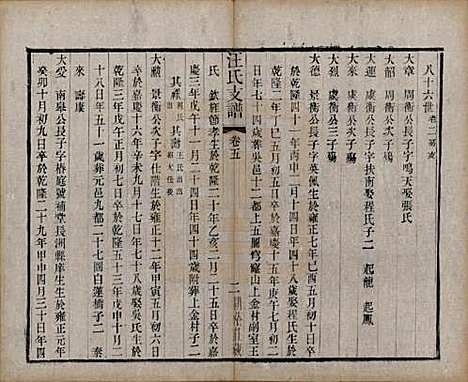 八十六世
大章 周衡公次子字鳴天娶張氏
大韶 周衡公三子
大運 大來公長子字扶南娶程氏子二 起龍 起鳳
大烈 大來公三子
大德 景衡公長子字英佩生於雍正七年己酉五月初十日
四十一年丙申二月十四日年四十八歲娶程氏生於
乾隆二年丁巳五月初五日卒於嘉慶十五年庚午七月初八
日年七十四歲葬吳邑十都上五圖穹窿山上金村副室王
汪氏支譜 卷五
氏 欽旌節孝生於乾隆二十年乙亥二月二十五日卒於嘉
慶三年戊午十一月二十四日年四十四歲附葬上金村子二
其
大勳 景衡公次子字仕生於雍正十二年甲寅五月初六日
乾隆三十五年九月十七日年三十七歲娶吳氏生於
乾隆三年戊午十一月十五日卒於乾隆五十三年戊申十月二
十八日年五十一歲葬元邑九都二十圖白蓮橋子二 泰
來 壽康
大受 南皋公長子字椿庭號補堂長洲縣庠生生於雍正
癸卯十月初九日卒於乾隆二十九年甲申四月三十日年四